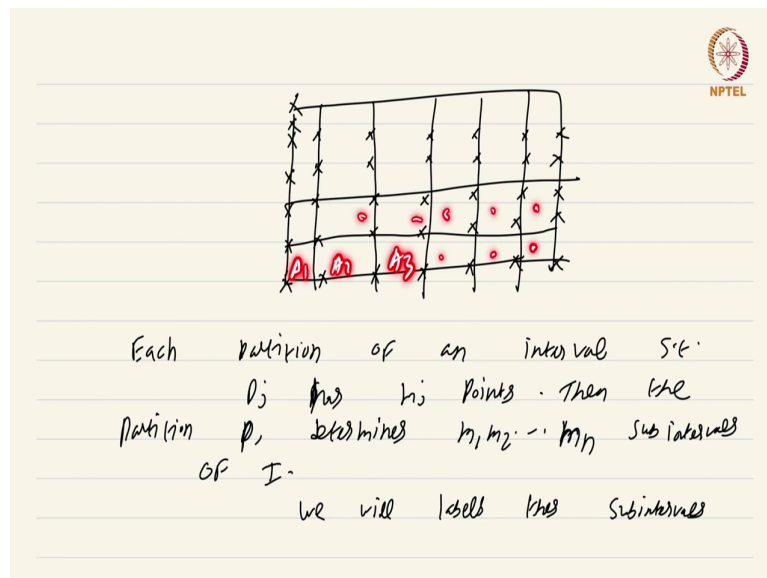 NPTEL
A1 A2 A3
Each partition of an interval s.t.
Pj has nj points. Then the
Partition P, determines m1 m2 ... mn subintervals
OF I.
we will labells thes subintervals